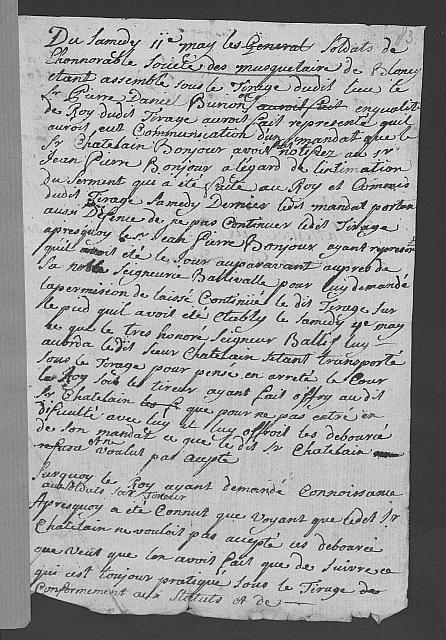 Du Samdy 11e may les General Soldats de
Lhonnorable Societé des musquetaire de Blonay
etant assemblé sous le Tirage dudit lieu le
Sr Pierre Daniel Bonjour auroit fait en qualité
de Roy dudit Tirage auroit fait representé quil
auroit eut Communication dun mandat que le
Sr Chatelain Bonjour avoit notifiez au Sr
Jean Pierre Bonjour à legard de lintimation
du Serment qui a été faite au Roy et Commis
dudit Tirage Samedy Dernier ledit mandat portan
aussi Défence de ne pas Continuer ledit Tirage
apresquoy le Sr Jean Pierre Bonjour ayant represente
quil avoit été le Jour auparavant aupres de
Sa noble Seigneurie Ballivalle pour luy demandé
la permision de laissé Continué le dit Tirage Sur
le pied quil avoit été Etably le Samedy 4e may
ce que le tres honoré Seigneur Ballif luy
acorda ledit Sieur Chatelain Setant transporté
Sous le Tirage pour pense en arreté le Cour
le Roy Sous le tireur ayant fait offry au dit
Sr Chatelain que pour ne pas entré en
dificulté avec luy et luy offroit les debourcé
de son mandat ce que ledit Sr Chatelain
refusa et ne voulut pas acepté
Surquoy le Roy ayant demandé Connoissance
aux Soldats
Apresquoy a été Connut que voyant que ledit Sr
Chatelain ne vouloit pas accepté ces debourcé
que veut que lon avoit fait que de Suivre ce
qui est toujour pratiqué Sous le Tirage de
Conformement aux Statuts et de